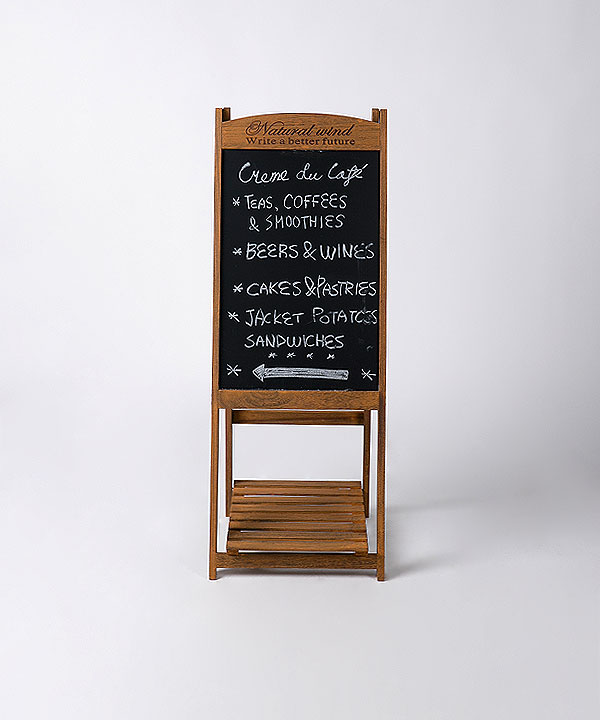 Natural wind
Write a better future
Creme du Café
* TEAS, COFFEES
& SMOOTHIES
* BEERS & WINES
* CAKES & PASTRIES
* JACKET POTATOES
SANDWICHES
* * * *
* ← *